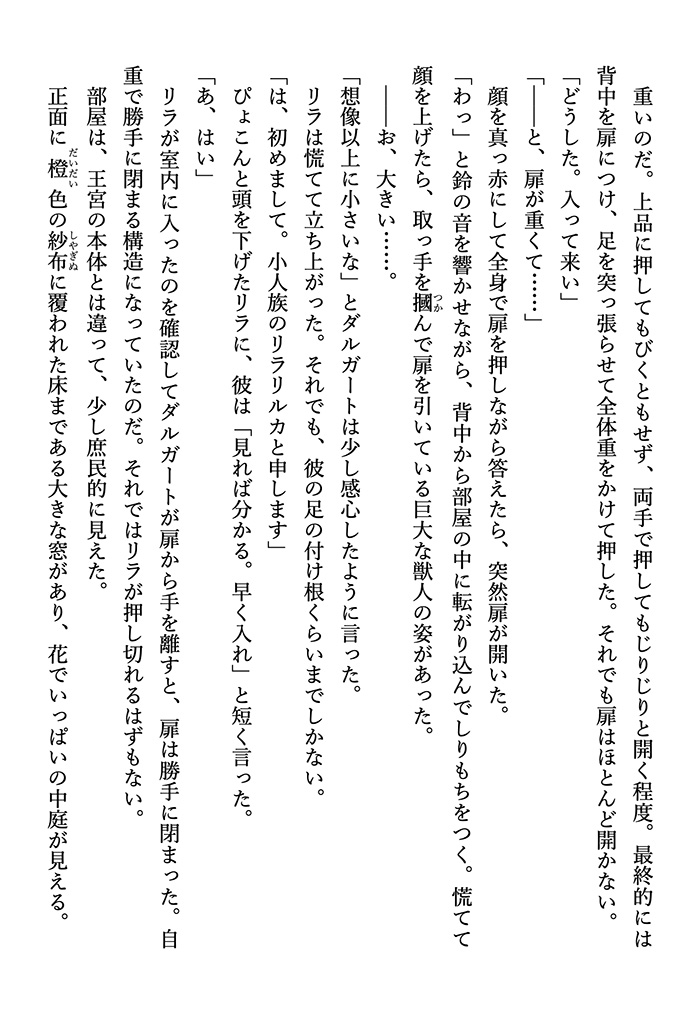 重いのだ。上品に押してもびくともせず、両手で押してもじりじりと開く程度。最終的には
背中を扉につけ、足を突っ張らせて全体重をかけて押した。それでも扉はほとんど開かない。
「どうした。入って来い」
「――と、扉が重くて……」
顔を真っ赤にして全身で扉を押しながら答えたら、突然扉が開いた。
「わっ」と鈴の音を響かせながら、背中から部屋の中に転がり込んでしりもちをつく。慌てて
顔を上げたら、取っ手を摑んで扉を引いている巨大な獣人の姿があった。
――お、大きい……。
「想像以上に小さいな」とダルガートは少し感心したように言った。
リラは慌てて立ち上がった。それでも、彼の足の付け根くらいまでしかない。
「は、初めまして。小人族のリラリルカと申します」
ぴょこんと頭を下げたリラに、彼は「見れば分かる。早く入れ」と短く言った。
「あ、はい」
リラが室内に入ったのを確認してダルガートが扉から手を離すと、扉は勝手に閉まった。自
重で勝手に閉まる構造になっていたのだ。それではリラが押し切れるはずもない。
部屋は、王宮の本体とは違って、少し庶民的に見えた。
正面に橙色の紗布に覆われた床まである大きな窓があり、花でいっぱいの中庭が見える。
つか
だいだい
しゃぎぬ